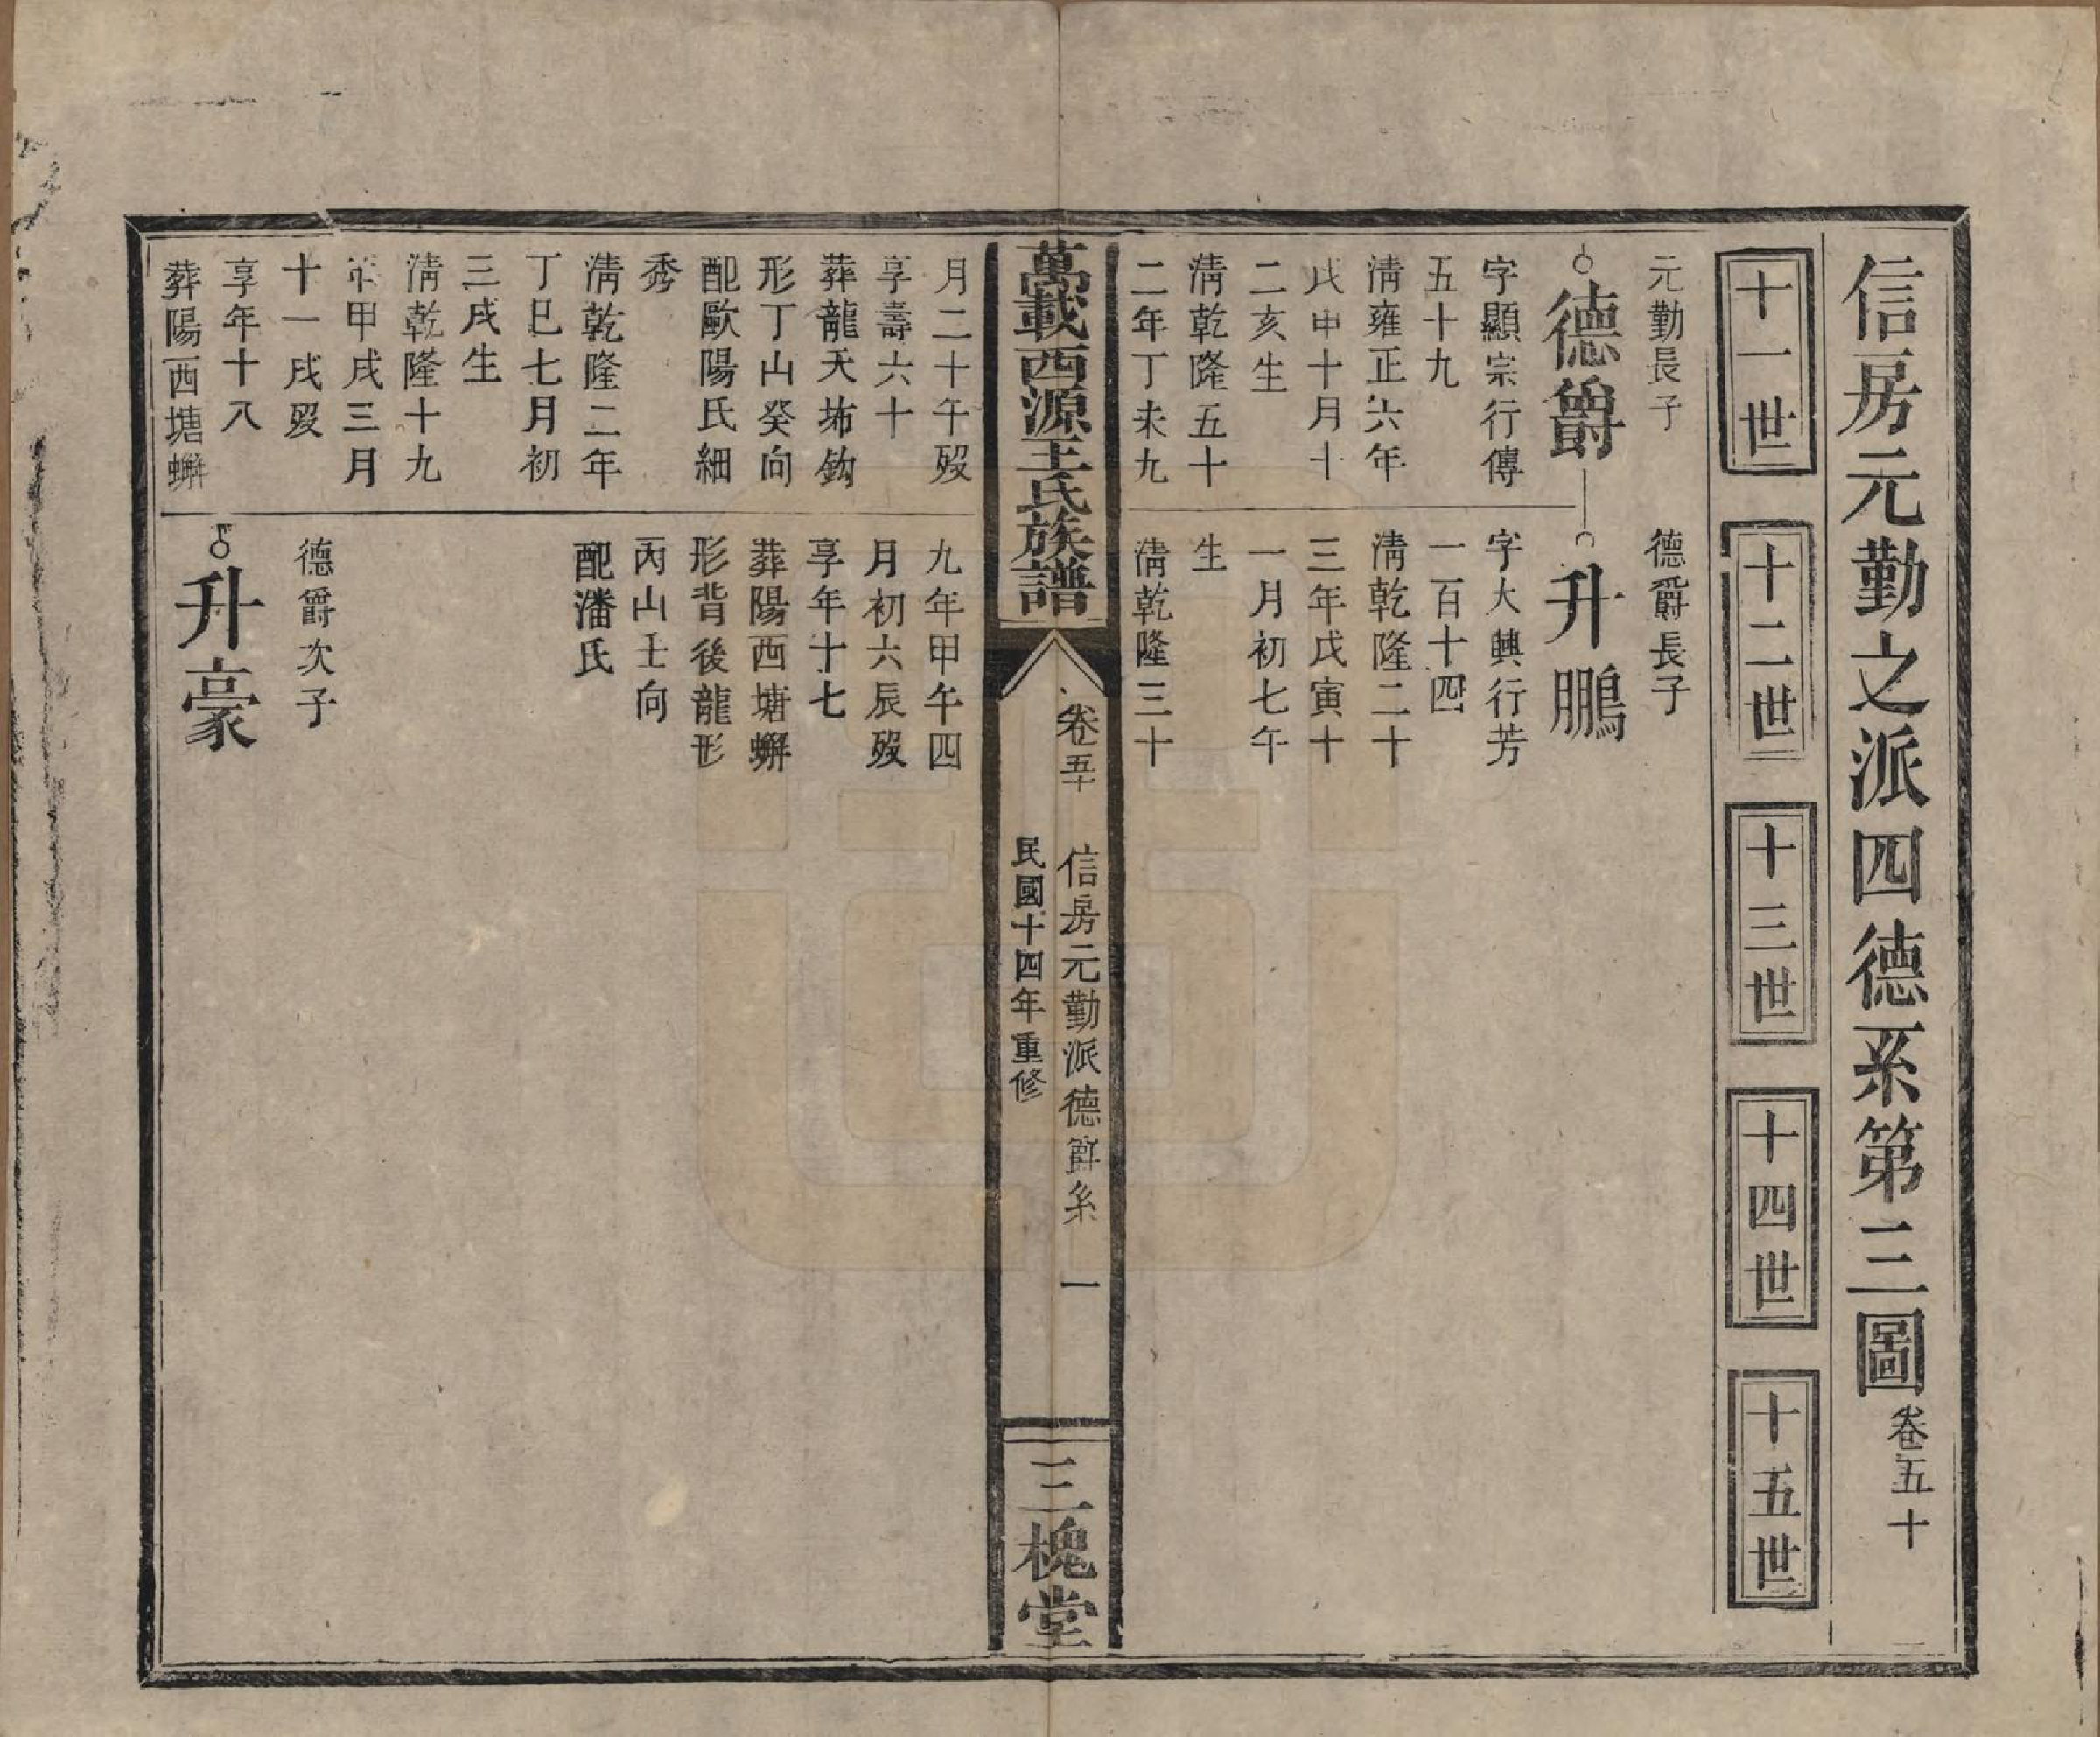 信房元勤之派四德系第三圖 卷五十
十一世
十二世
十三世
十四世
十五世
元勤長子
德爵
字顯宗行傳
五十九
淸雍正六年
戊申十月十
二亥生
淸乾隆五十
二年丁未九
德爵長子
升鵬
字大興行芳
一百十四
淸乾隆二十
三年戊寅十
一月初七午
生
淸乾隆三十
萬載西源王氏族譜
卷五十 信房元勤派德爵系 一
民國十四年重修
三槐堂
月二十午歿
享壽六十
葬龍天坳鈎
形丁山癸向
配歐陽氏細
秀
淸乾隆二年
丁巳七月初
三戌生
淸乾隆十九
年甲戌三月
十一戌歿
享年十八
葬陽西塘蠏
九年甲午四
月初六辰歿
享年十七
葬陽西塘蠏
形背後龍形
丙山壬向
配潘氏
德爵次子
升豪